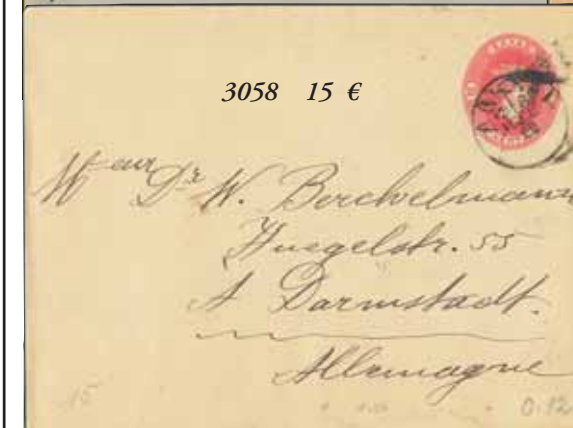 3058 15 €
Mr Dr W. Berchelmann
Huegelstr. 55
A Darmstadt.
Allemagne
15
0.12